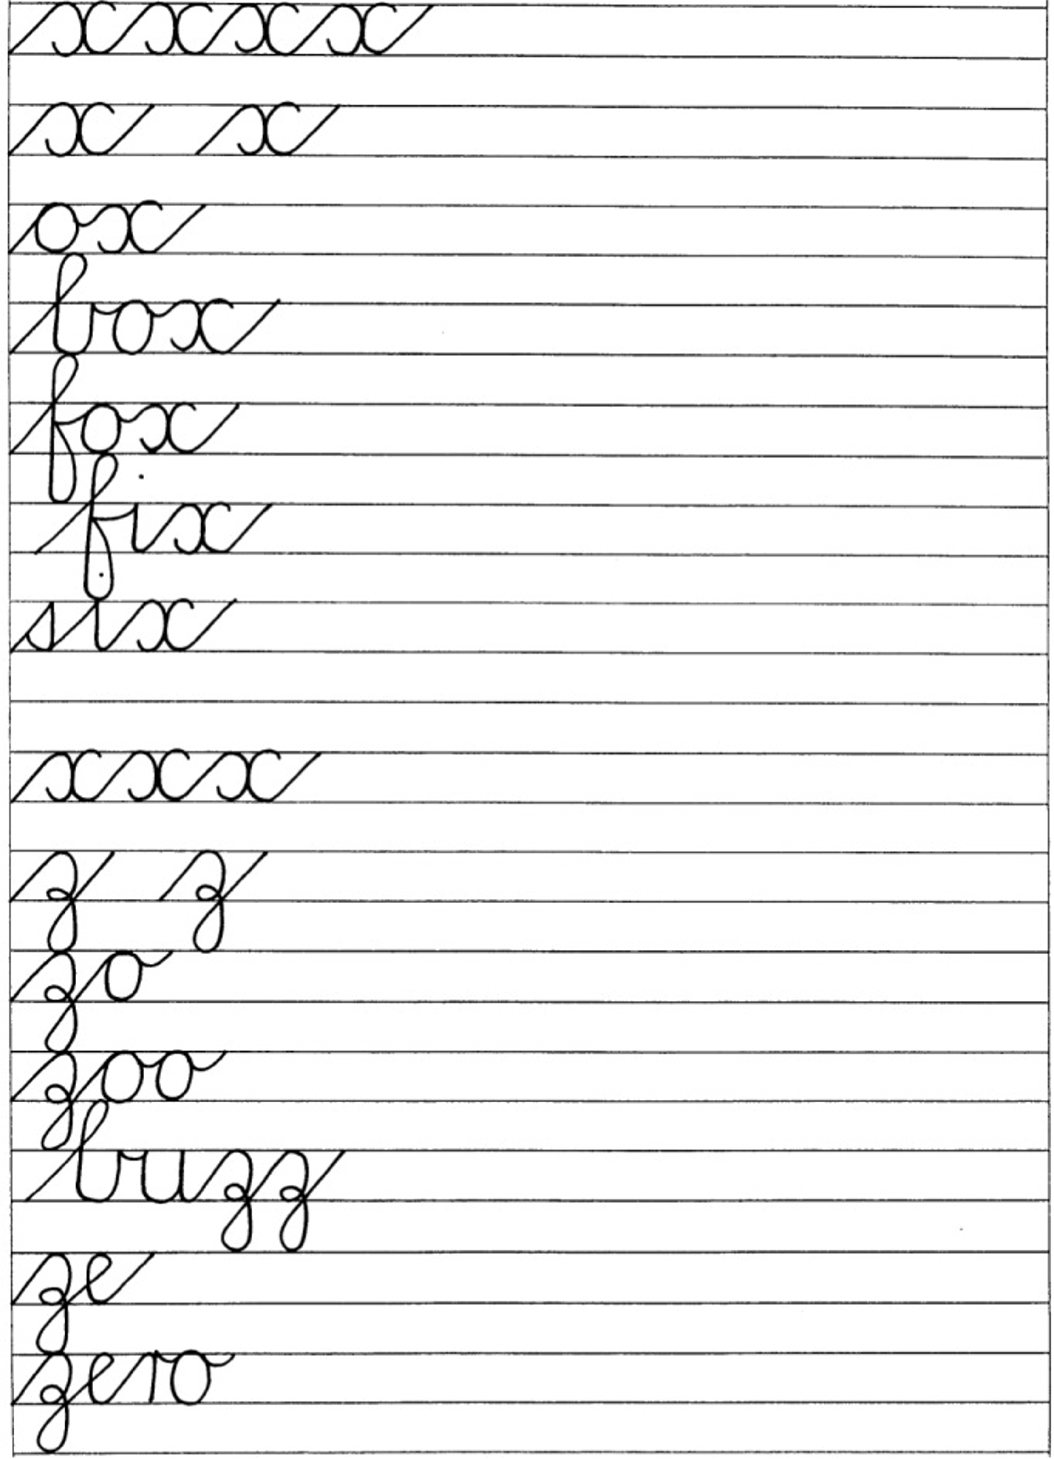 xxxx
x x
ox
box
fox
fix
six
xxx
z z
zo
zoo
buzz
ze
zero